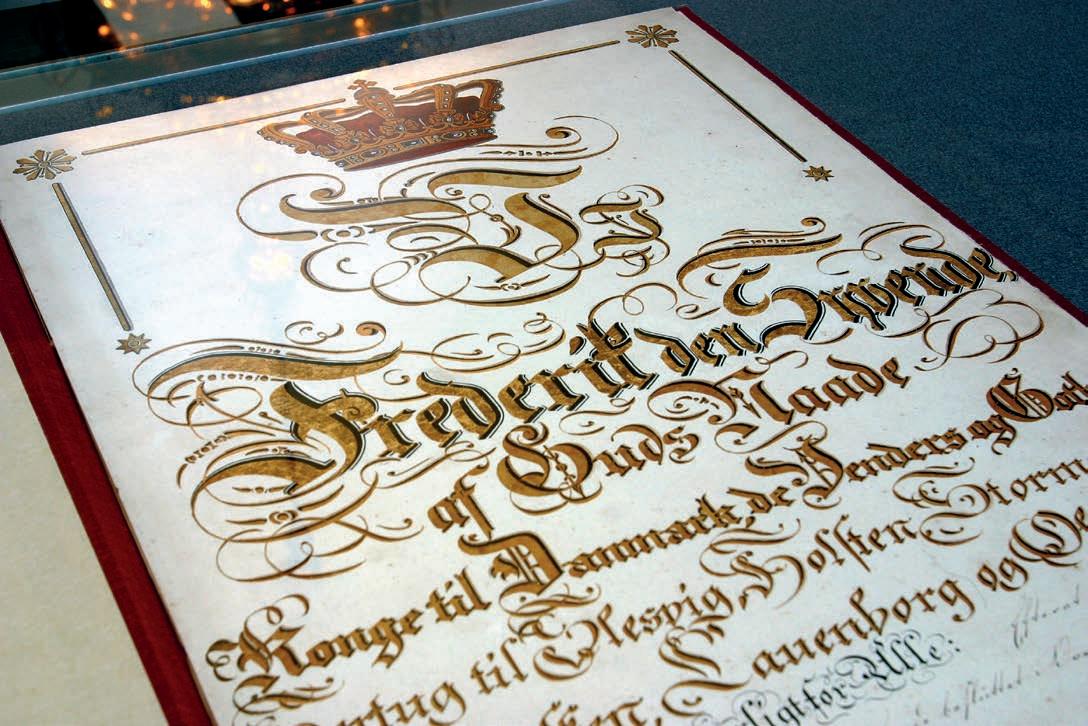 Frederik den Syvende,
af Guds Naade
Konge til Danmark, de Venders og Goth
ertug til Slesvig, Holsten, Storm
Lauenborg og Ol
ligt for Alle: